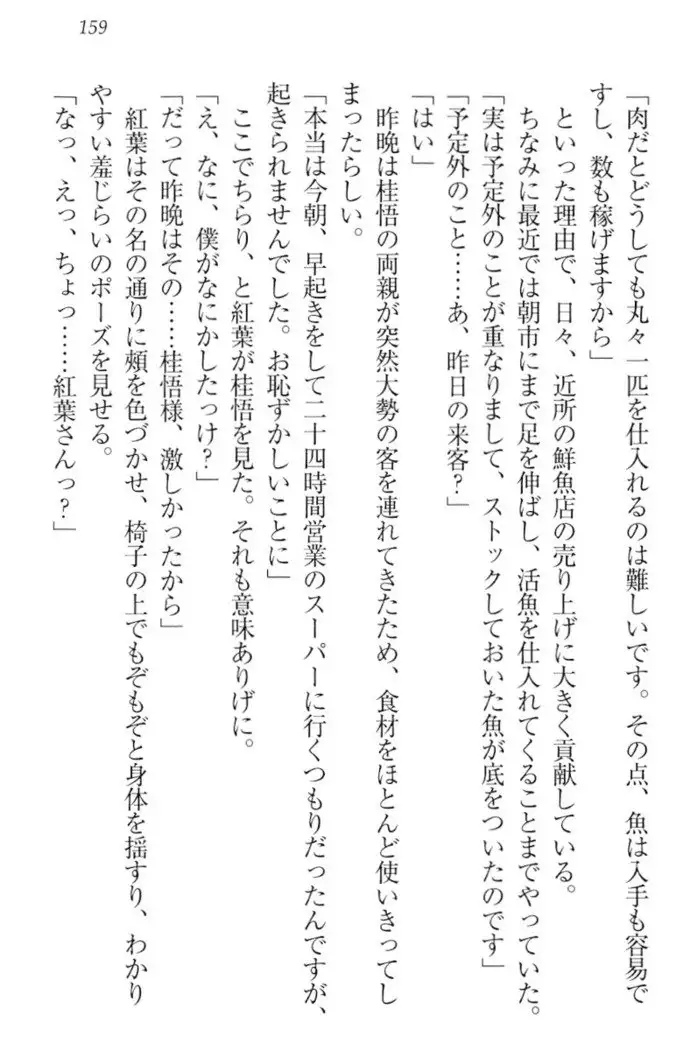 159
「肉だとどうしても丸々一匹を仕入れるのは難しいです。その点、魚は入手も容易で
すし、数も稼げますから」
といった理由で、日々、近所の鮮魚店の売り上げに大きく貢献している。
ちなみに最近では朝市にまで足を伸ばし、活魚を仕入れてくることまでやっていた。
「実は予定外のことが重なりまして、ストックしておいた魚が底をついたのです」
「予定外のこと……あ、昨日の来客？」
「はい」
昨晩は桂悟の両親が突然大勢の客を連れてきたため、食材をほとんど使いきってし
まったらしい。
「本当は今朝、早起きをして二十四時間営業のスーパーに行くつもりだったんですが、
起きられませんでした。お恥ずかしいことに」
ここでちらり、と紅葉が桂悟を見た。それも意味ありげに。
「え、なに、僕がなにかしたっけ？」
「だって昨晩はその……桂悟様、激しかったから」
紅葉はその名の通りに頰を色づかせ、椅子の上でもぞもぞと身体を揺すり、わかり
やすい羞じらいのポーズを見せる。
「なっ、えっ、ちょっ……紅葉さんっ？」